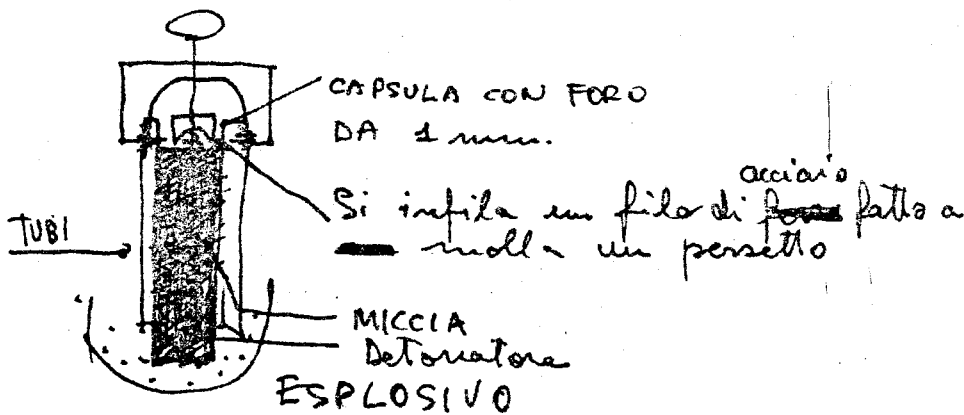 CAPSULA CON FORO
DA 1 mm.
acciaio
Si infila un filo di fatto a
molla un pezzetto
TUBI
MICCIA
Detonatore
ESPLOSIVO